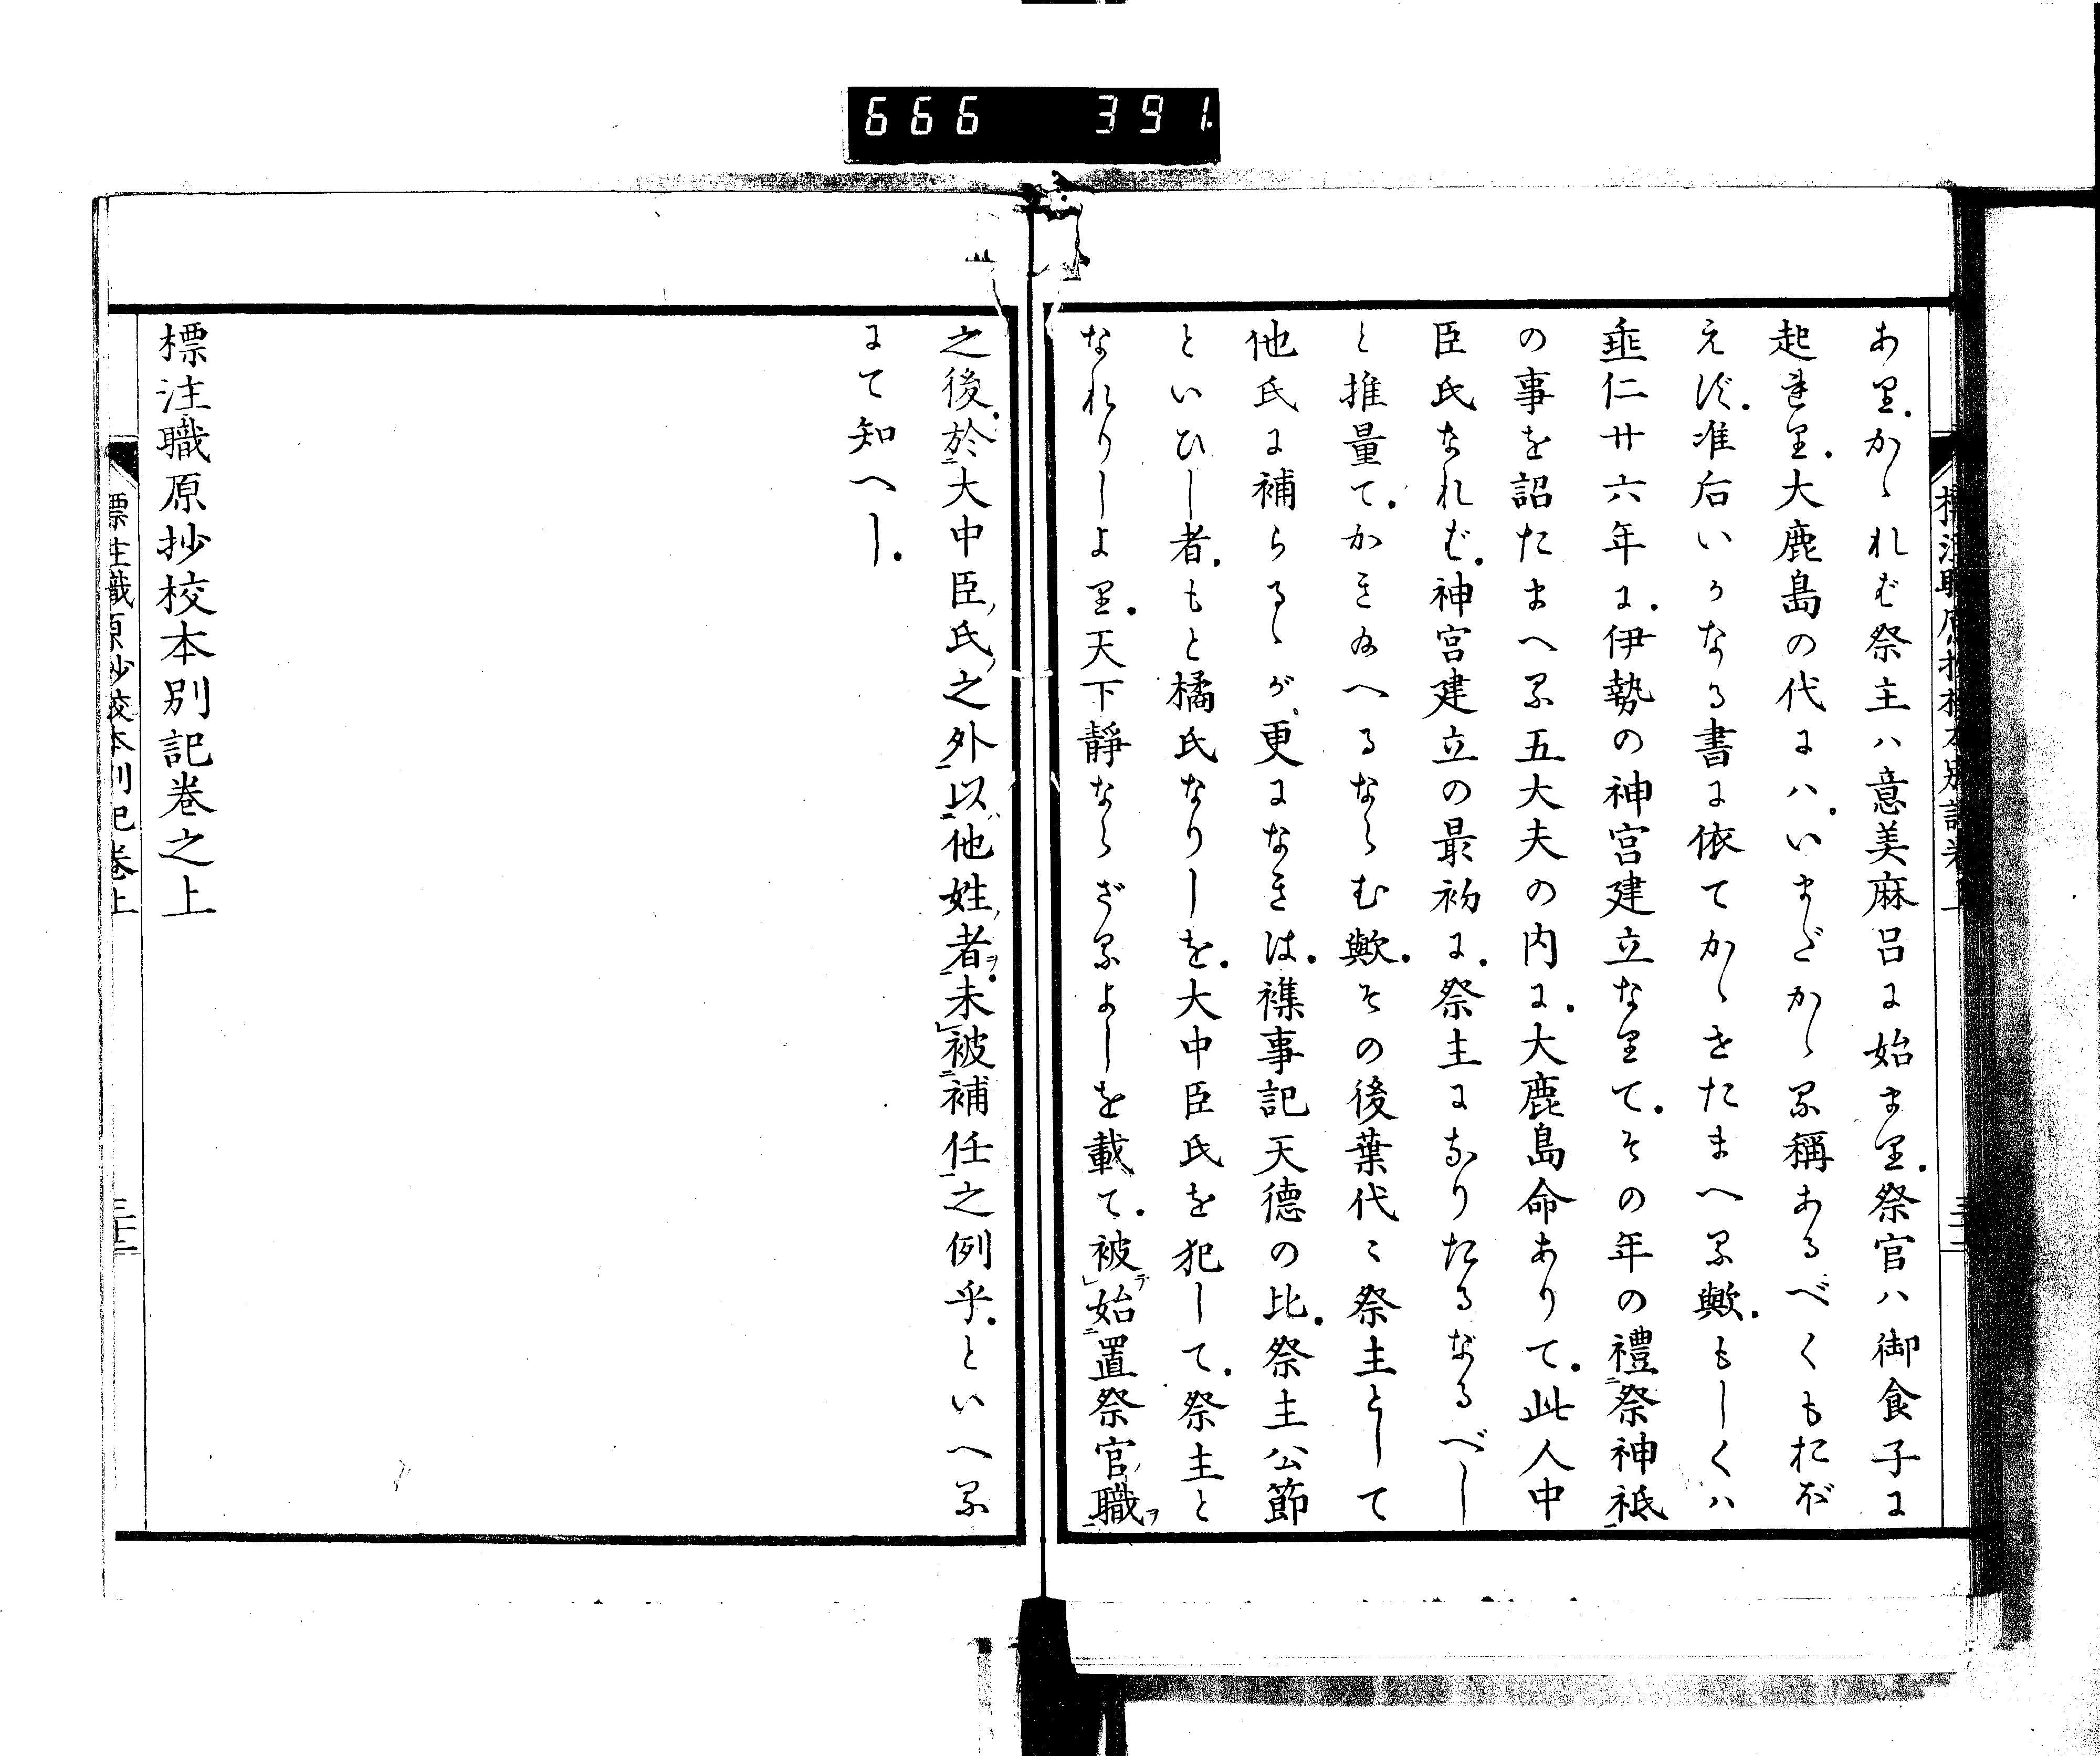 666 391
あり。かゝれむ祭主ハ意美麻呂に始まり。祭官ハ御食子に
起れり。大鹿島の代にハ。いまだかゝる稱あるべくもおぼ
えず。准后いかなる書に依てかゝきたまへる歟。もしくハ
垂仁廿六年に。伊勢の神宮建立なりて。その年の禮祭神祇
の事を詔たまへる五大夫の内に。大鹿島命ありて。此人中
臣氏なれむ。神宮建立の最初に。祭主になりたるなるべし
と推量て。かき給へるならむ歟。その後葉代〻祭主として
他氏に補らるゝが更になきは。襍事記天德の比。祭主公節
といひし者。もと橘氏なりしを。大中臣氏を犯して。祭主と
なれりしより。天下靜ならざるよしを載て。被始置祭官職
之後。於大中臣氏之外以他姓者。未被補任之例乎。といへる
にて知へし。
標注職原抄校本別記巻之上
標注職原抄校本別記巻上